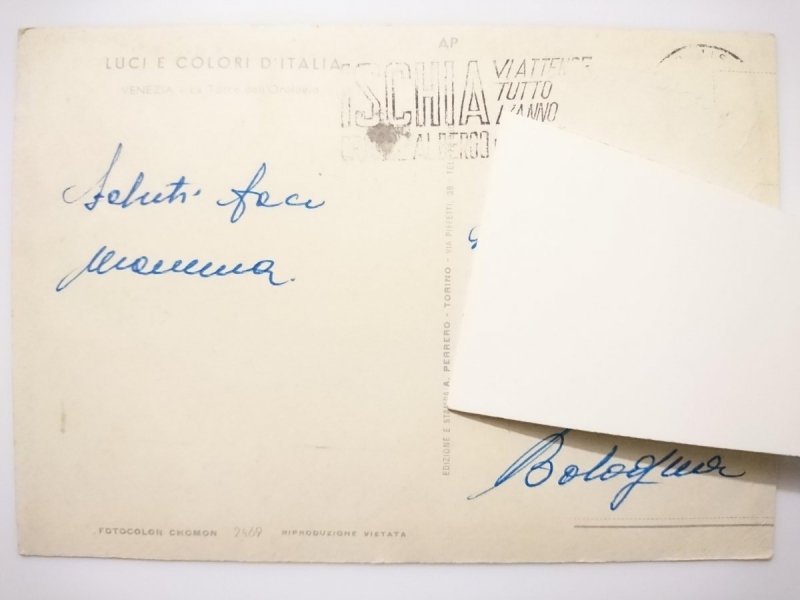 AP
LUCI E COLORI D'ITALIA
VENEZIA - La Torre dell'Orologio
ISCHIA
VI ATTENDE
TUTTO
L'ANNO
ALBERGO
Saluti baci
mamma.
Bologna
EDIZIONE E STAMPA A. PERRERO - TORINO - VIA PIFFETTI, 39 - TEL
FOTOCOLOR CHOMON 2469 RIPRODUZIONE VIETATA